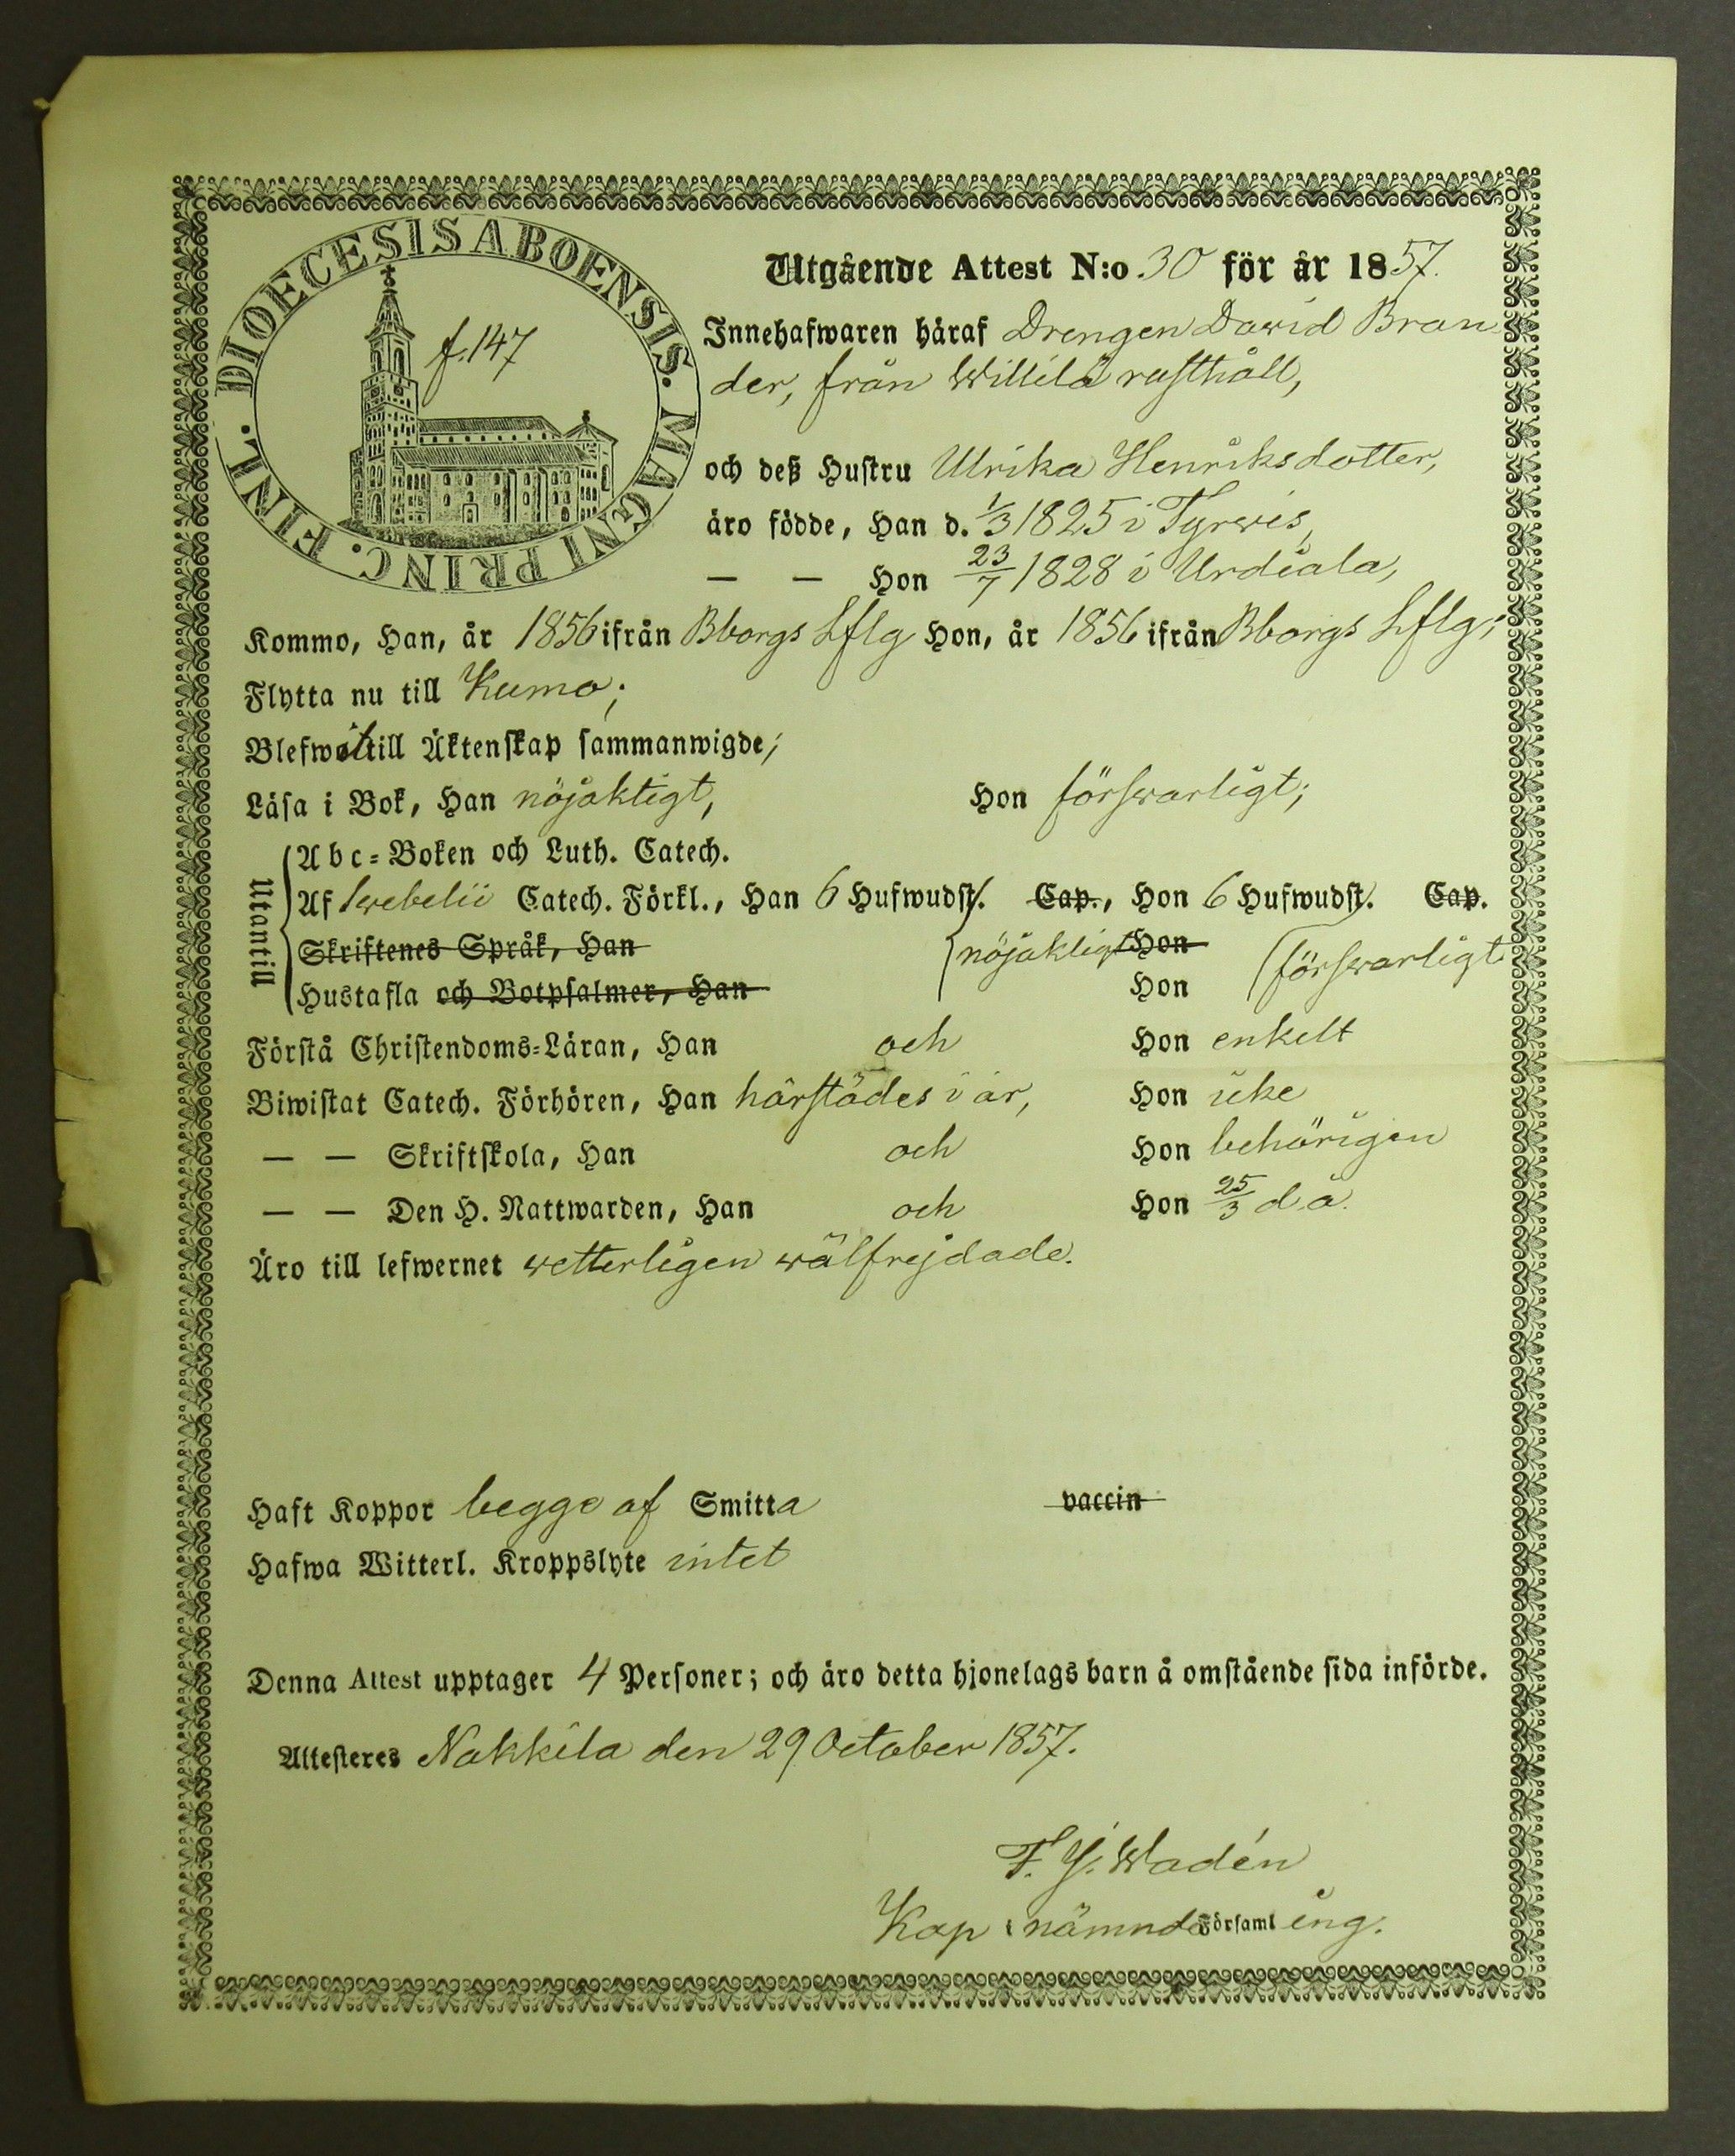 DIOECESIS ABOENSIS. MAGNI PRINC. FINL.
f. 147
Utgående Attest N:o 30 för år 1857.
Innehafwaren häraf Drengen Dawid Bran
der, från Willilä rusthåll,
och deß Hustru Ulrika Henriksdotter,
äro födde, Han d. 1/3 1825 i Tyrwis,
— — Hon 23/7 1828 i Urdiala,
Kommo, Han, år 1856 ifrån Bborgs Lflg Hon, år 1856 ifrån Bborgs Lflg;
Flytta nu till Kumo;
Blefwo till Äktenskap sammanwigde;
Läsa i Bok, Han nöjaktigt, Hon förswarligt;
Utantill
Abc-Boken och Luth. Catech.
Af Swebelii Catech. Förkl., Han 6 Hufwudst. Cap., Hon 6 Hufwudst. Cap.
Skriftenes Språk, Han nöjaktigt Hon förswarligt
Hustafla och Botpsalmer, Han Hon
Förstå Christendoms-Läran, Han och Hon enkelt
Biwistat Catech. Förhören, Han härstädes i år, Hon icke
— — Skriftskola, Han och Hon behörigen
— — Den H. Nattwarden, Han och Hon 25/3 d.å.
Äro till lefwernet wetterligen wälfrejdade.
Haft Koppor begge af Smitta vaccin
Hafwa Witterl. Kroppslyte intet
Denna Attest upptager 4 Personer; och äro detta hjonelags barn å omstående sida införde.
Attesteres Nakkila den 29 October 1857.
F. J. Wadén
Kap i nämnde Församling.